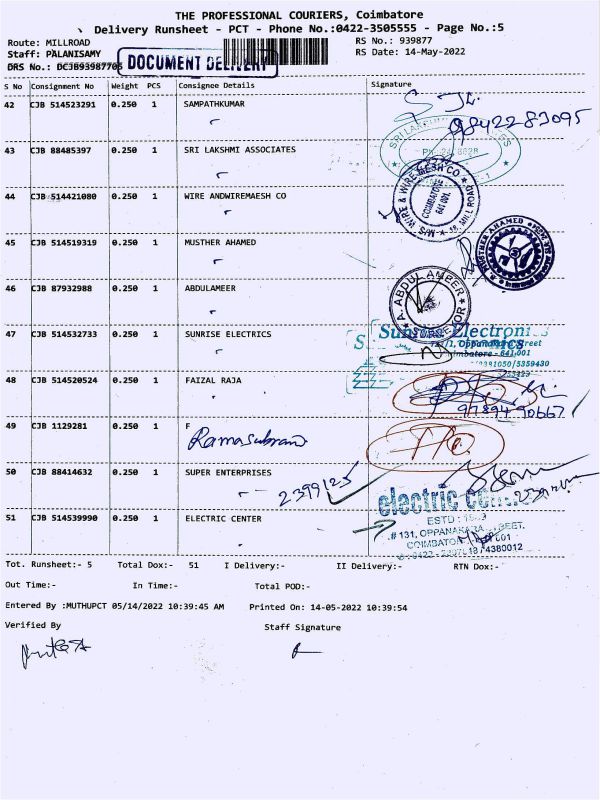 THE PROFESSIONAL COURIERS, Coimbatore
Delivery Runsheet - PCT - Phone No.:0422-3505555 - Page No.:5
Route: MILLROAD RS No.: 939877
Staff: PALANISAMY RS Date: 14-May-2022
DRS No.: DOCUMENT DELIVERY
S No Consignment No Weight PCS Consignee Details Signature
42 CJB 514523291 0.250 1 SAMPATHKUMAR
9842283095
43 CJB 88485397 0.250 1 SRI LAKSHMI ASSOCIATES
44 CJB 514421080 0.250 1 WIRE ANDWIREMAESH CO
M/S WIRE & WIRE MESH CO. 48, MILL ROAD
COIMBATORE 641 001.
45 CJB 514519319 0.250 1 MUSTHER AHAMED
MUSTHER AHAMED
46 CJB 87932988 0.250 1 ABDULAMEER
A. ABDUL AMEER
SURVEYOR
47 CJB 514532733 0.250 1 SUNRISE ELECTRICS
48 CJB 514520524 0.250 1 FAIZAL RAJA
9789490667
49 CJB 1129281 0.250 1 F
50 CJB 88414632 0.250 1 SUPER ENTERPRISES
2399125
51 CJB 514539990 0.250 1 ELECTRIC CENTER
electric
ESTD :
# 131, OPPANAKARA
4380012
Tot. Runsheet:- 5 Total Dox:- 51 I Delivery:- II Delivery:- RTN Dox:-
Out Time:- In Time:- Total POD:-
Entered By :MUTHUPCT 05/14/2022 10:39:45 AM Printed On: 14-05-2022 10:39:54
Verified By Staff Signature